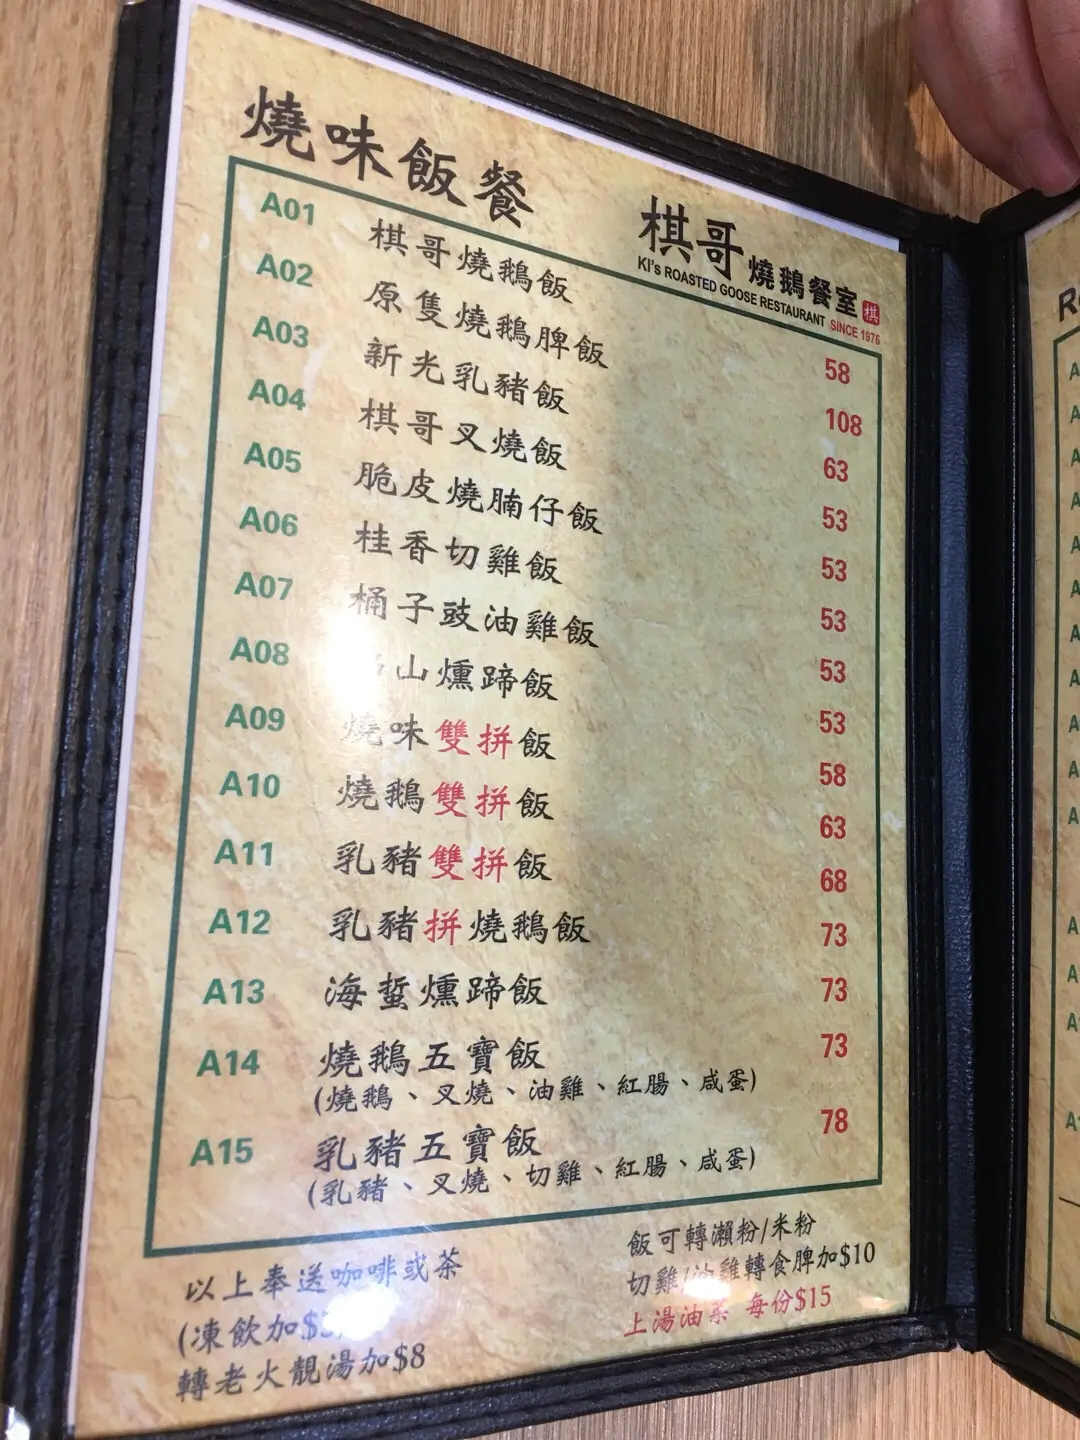 燒味飯餐
棋哥燒鵝餐室 棋
KI's ROASTED GOOSE RESTAURANT SINCE 1976
A01 棋哥燒鵝飯 58
A02 原隻燒鵝脾飯 108
A03 新光乳豬飯 63
A04 棋哥叉燒飯 53
A05 脆皮燒腩仔飯 53
A06 桂香切雞飯 53
A07 桶子豉油雞飯 53
A08 山燻蹄飯 53
A09 燒味雙拼飯 58
A10 燒鵝雙拼飯 63
A11 乳豬雙拼飯 68
A12 乳豬拼燒鵝飯 73
A13 海蜇燻蹄飯 73
A14 燒鵝五寶飯 73
(燒鵝、叉燒、油雞、紅腸、咸蛋)
A15 乳豬五寶飯 78
(乳豬、叉燒、切雞、紅腸、咸蛋)
以上奉送咖啡或茶
(凍飲加$
轉老火靚湯加$8
飯可轉瀨粉/米粉
切雞/油雞轉食脾加$10
上湯油菜 每份$15